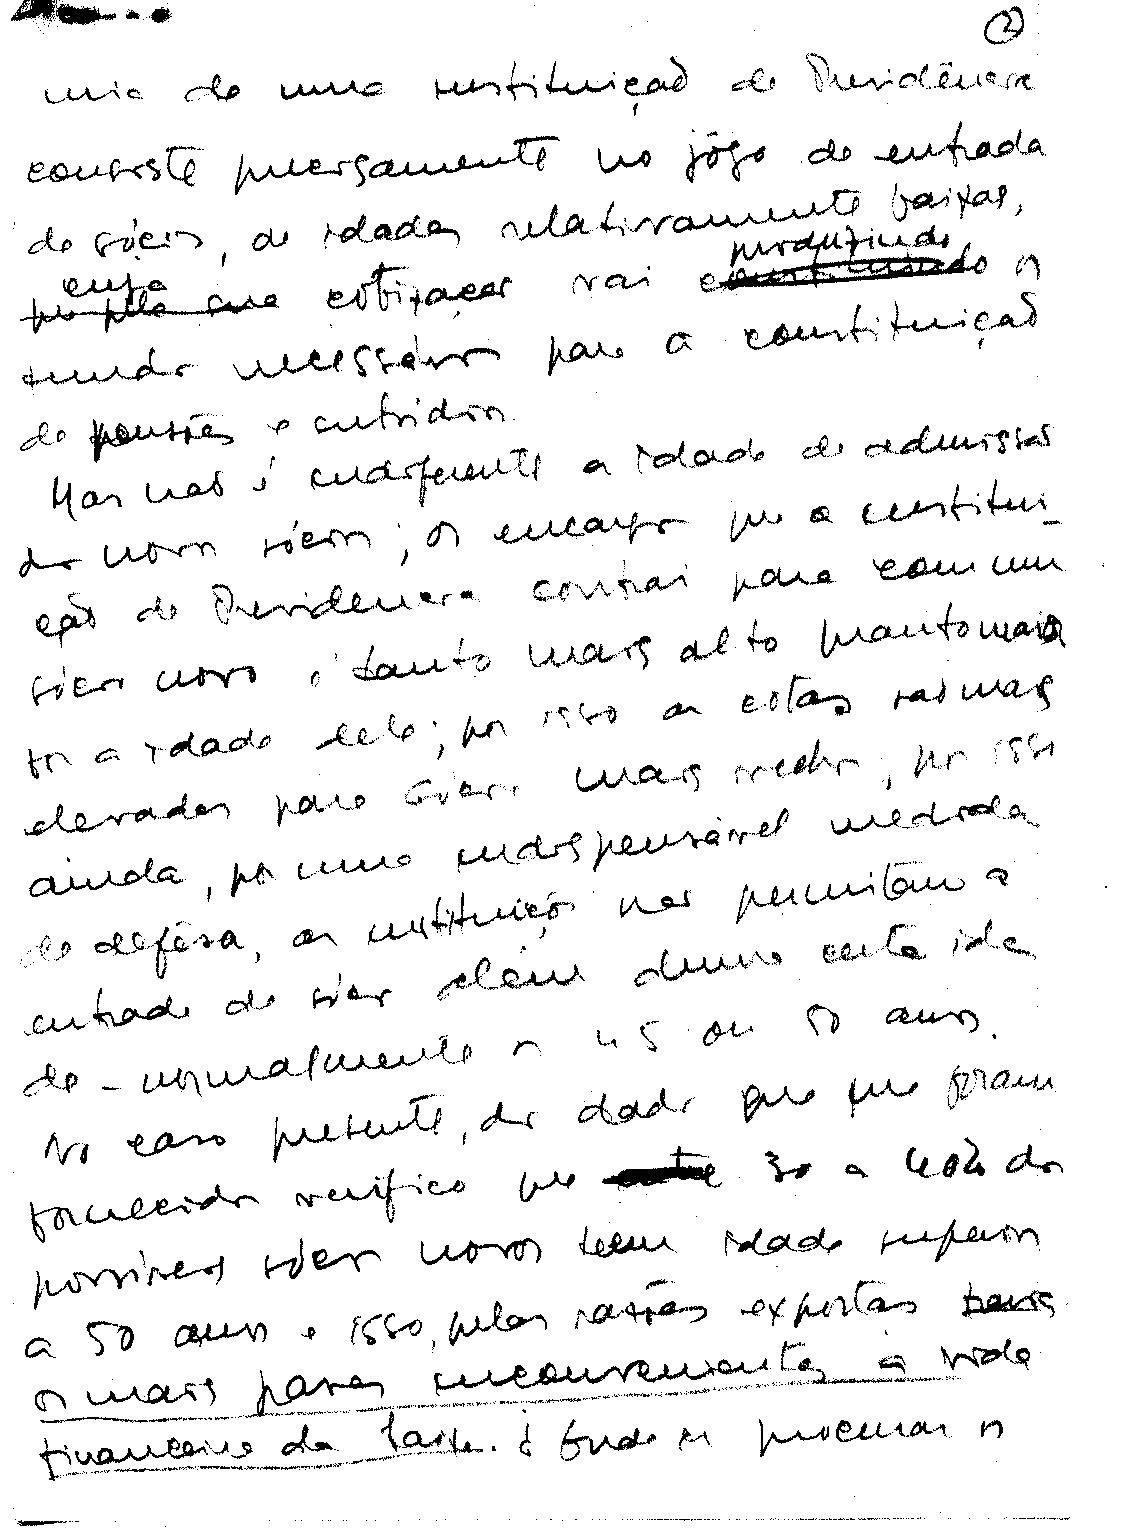 2
mia de uma instituição de Previdência
consiste precisamente no jôgo de entrada
de sócios, de idades relativamente baixas,
cuja produzindo
que pela sua cotização vai constituindo os
fundos necessários para a constituição
de pensões e subsídios
Mas não é indiferente a idade de admissão
dos novos sócios; os encargos que a institui-
ção de Previdência contrai para com um
sócio novo é tanto mais alto quanto maior
fôr a idade dele; por isso as cotas são mais
elevadas para sócios mais velhos, por isso
ainda, por uma indispensável medida
de defêsa, as instituições não permitem a
entrada de sócios além duma certa ida
de - normalmente os 45 ou 50 anos.
No caso presente, dos dados que me foram
fornecidos verifico que entre 30 a 40% dos
possíveis sócios novos teem idade superior
a 50 anos e isso, pelas razões expostas traz
os mais graves inconvenientes à vida
financeira da Caixa. É onde ir procurar os